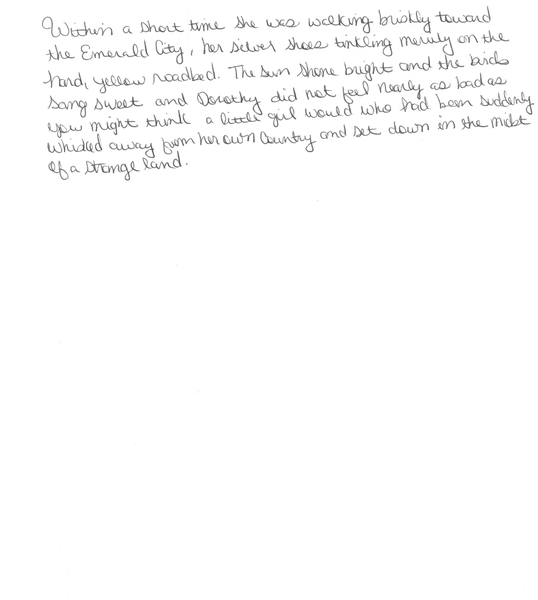 Within a short time she was walking briskly toward
the Emerald City, her silver shoes tinkling merrily on the
hard, yellow roadbed. The sun shone bright and the birds
sang sweet and Dorothy did not feel nearly as bad as
you might think a little girl would who had been suddenly
whisked away from her own country and set down in the midst
of a strange land.